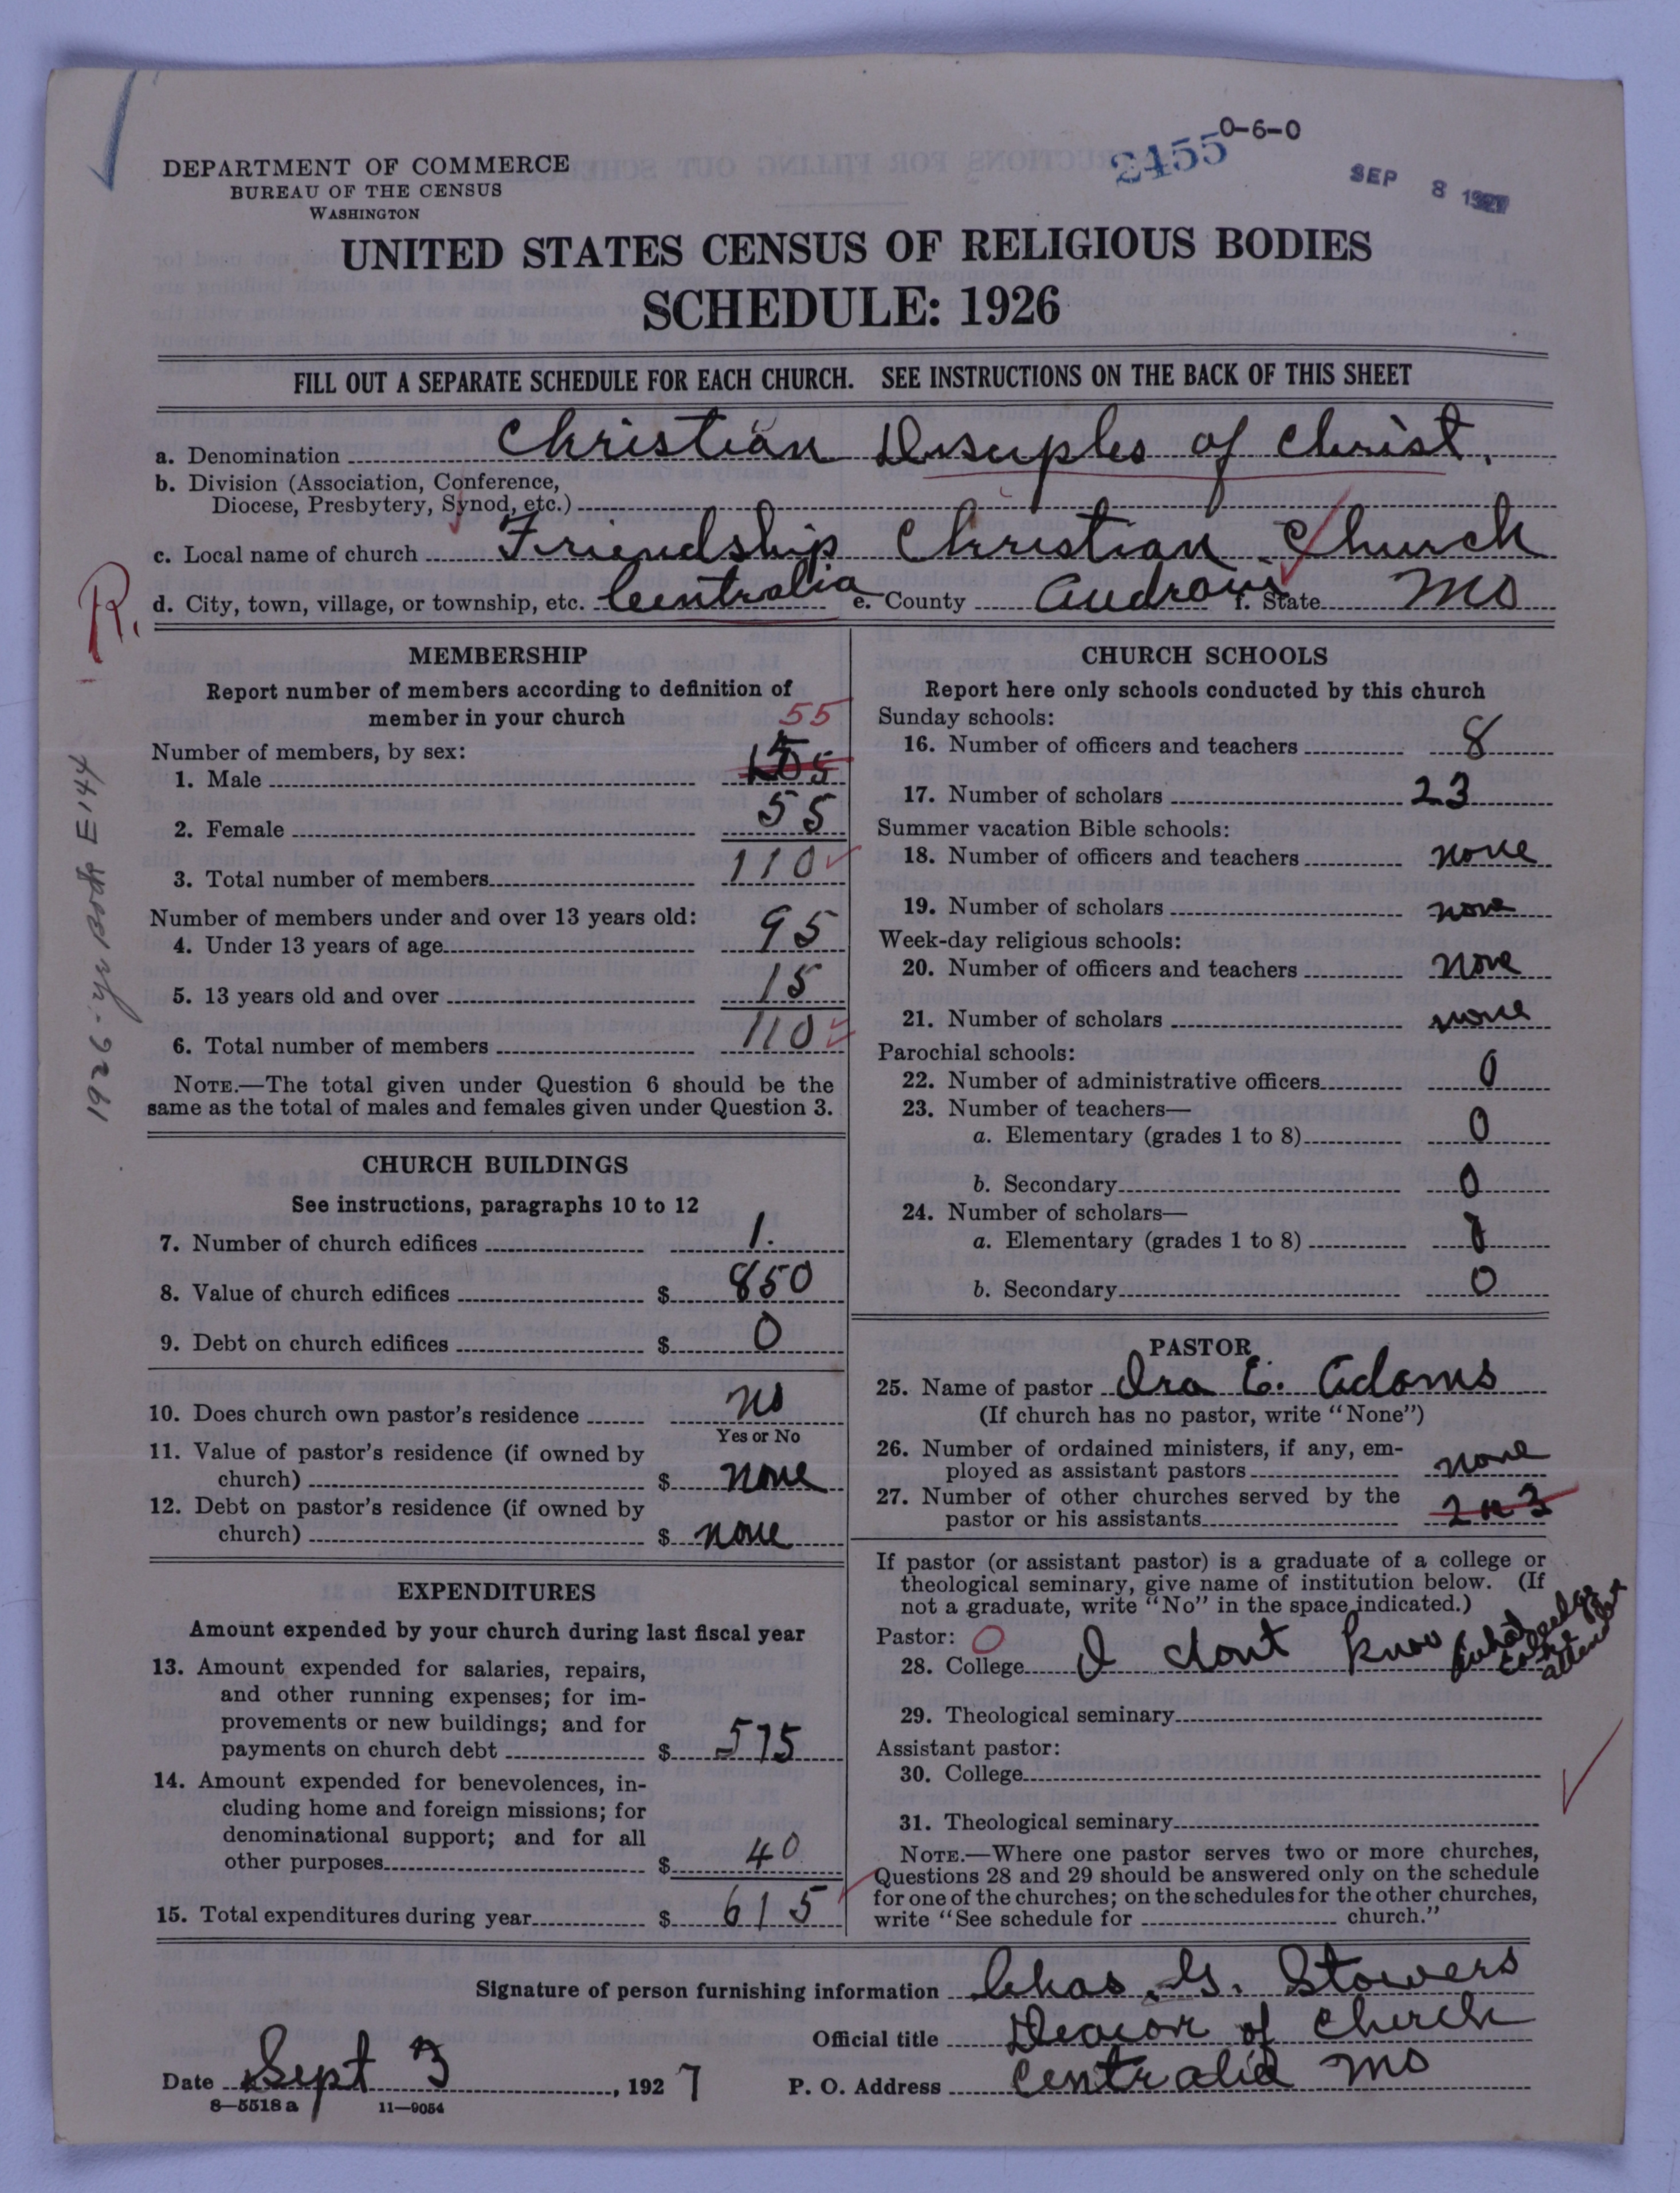 0-6-0
2455
SEP 8 1927
DEPARTMENT OF COMMERCE
BUREAU OF THE CENSUS
WASHINGTON
UNITED STATES CENSUS OF RELIGIOUS BODIES
SCHEDULE: 1926
FILL OUT A SEPARATE SCHEDULE FOR EACH CHURCH. SEE INSTRUCTIONS ON THE BACK OF THIS SHEET
a. Denomination Christian Disuples of Christ.
b. Division (Association, Conference,
Diocese, Presbytery, Synod, etc.)
c. Local name of church Friendship Christian Church
R. d. City, town, village, or township, etc. Centralia e. County Audrain f. State Mo
1926-yr Book E144
MEMBERSHIP
Report number of members according to definition of
member in your church
55
Number of members, by sex:
1. Male
2. Female 55
3. Total number of members 110
Number of members under and over 13 years old:
4. Under 13 years of age 95
5. 13 years old and over 15
6. Total number of members 110
NOTE.—The total given under Question 6 should be the
same as the total of males and females given under Question 3.
CHURCH BUILDINGS
See instructions, paragraphs 10 to 12
7. Number of church edifices 1.
8. Value of church edifices $ 850
9. Debt on church edifices $ 0
10. Does church own pastor's residence no
Yes or No
11. Value of pastor's residence (if owned by
church) $ none
12. Debt on pastor's residence (if owned by
church) $ none
EXPENDITURES
Amount expended by your church during last fiscal year
13. Amount expended for salaries, repairs,
and other running expenses; for im-
provements or new buildings; and for
payments on church debt $ 575
14. Amount expended for benevolences, in-
cluding home and foreign missions; for
denominational support; and for all
other purposes $ 40
15. Total expenditures during year $ 615
CHURCH SCHOOLS
Report here only schools conducted by this church
Sunday schools:
16. Number of officers and teachers 8
17. Number of scholars 23
Summer vacation Bible schools:
18. Number of officers and teachers none
19. Number of scholars none
Week-day religious schools:
20. Number of officers and teachers none
21. Number of scholars none
Parochial schools:
22. Number of administrative officers 0
23. Number of teachers—
a. Elementary (grades 1 to 8) 0
b. Secondary 0
24. Number of scholars—
a. Elementary (grades 1 to 8) 0
b. Secondary 0
PASTOR
25. Name of pastor Ira E. Adams
(If church has no pastor, write "None")
26. Number of ordained ministers, if any, em-
ployed as assistant pastors none
27. Number of other churches served by the
pastor or his assistants 2 or 3
If pastor (or assistant pastor) is a graduate of a college or
theological seminary, give name of institution below. (If
not a graduate, write "No" in the space indicated.)
Pastor: O
28. College I dont know what college he attended
29. Theological seminary
Assistant pastor:
30. College
31. Theological seminary
NOTE.—Where one pastor serves two or more churches,
Questions 28 and 29 should be answered only on the schedule
for one of the churches; on the schedules for the other churches,
write "See schedule for church."
Signature of person furnishing information Chas. G. Stowers
Official title Deacon of Church
Date Sept 3, 1927 P. O. Address Centralia Mo
8—5518 a 11—9054